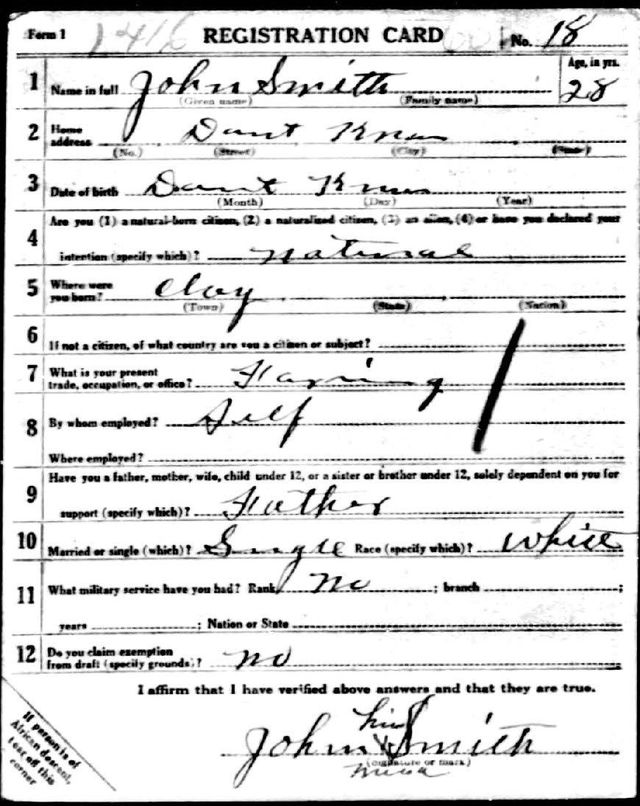 Form 1 1416 REGISTRATION CARD No. 18
1 Name in full John Smith Age, in yrs.
(Given name) (Family name) 28
2 Home address Dont Know
(No.) (Street) (City) (State)
3 Date of birth Dont Know
(Month) (Day) (Year)
Are you (1) a natural-born citizen, (2) a naturalized citizen, (3) an alien, (4) or have you declared your
4 intention (specify which)? natural
5 Where were you born? Clay
(Town) (State) (Nation)
6 If not a citizen, of what country are you a citizen or subject?
7 What is your present
trade, occupation, or office? Farming
8 By whom employed? Self
Where employed?
Have you a father, mother, wife, child under 12, or a sister or brother under 12, solely dependent on you for
9 support (specify which)? Father
10 Married or single (which)? Single Race (specify which)? White
11 What military service have you had? Rank No ; branch ;
years ; Nation or State
12 Do you claim exemption
from draft (specify grounds)? no
I affirm that I have verified above answers and that they are true.
his
John X Smith
(Signature or mark)
If person is of
African descent,
tear off this
corner